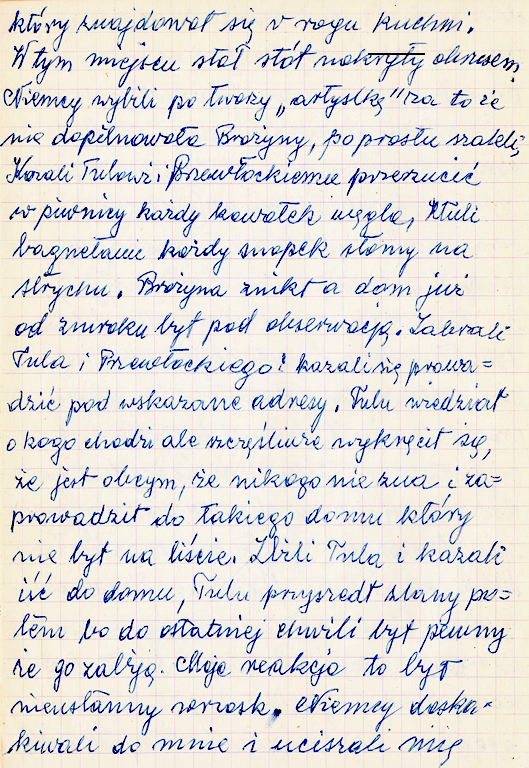 który znajdował się v rogu kuchni.
W tym miejscu stał stół nakryty obrusem.
Niemcy wybili po twarzy „artystkę" za to że
nie dopilnowała Brożyny, po prostu szaleli,
Kazali Tulowi i Przewłockiemu przerzucić
w piwnicy każdy kawałek węgla, kłuli
bagnetami każdy snopek słomy na
strychu. Brożyna znikł a dom już
od zmroku był pod obserwacją. Zabrali
Tula i Przewłockiego i kazali się prowa=
dzić pod wskazane adresy. Tulu wiedział
o kogo chodzi ale szczęśliwie wykręcił się,
że jest obcym, że nikogo nie zna i za=
prowadził do takiego domu który
nie był na liście. Zbili Tula i kazali
iść do domu, Tulu przyszedł zlany po=
tem bo do ostatniej chwili był pewny
że go zabiją. Moja reakcja to był
nieustanny wrzask. Niemcy doska-
kiwali do mnie i uciszali mię